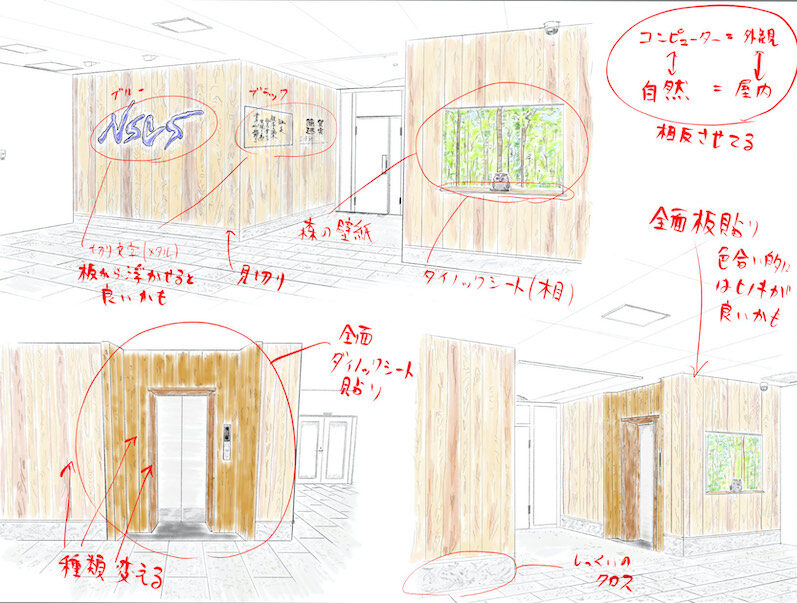 ブルー
NSLS
ブラック
コンピューター = 外観
自然 = 屋内
相反させてる
切り文字(メタル)
板から浮かせると
良いかも
見切り
森の壁紙
ダイノックシート(木目)
全面板貼り
色合い的に
はヒノキが
良いかも
全面
ダイノックシート
貼り
種類変える
しっくいの
クロス